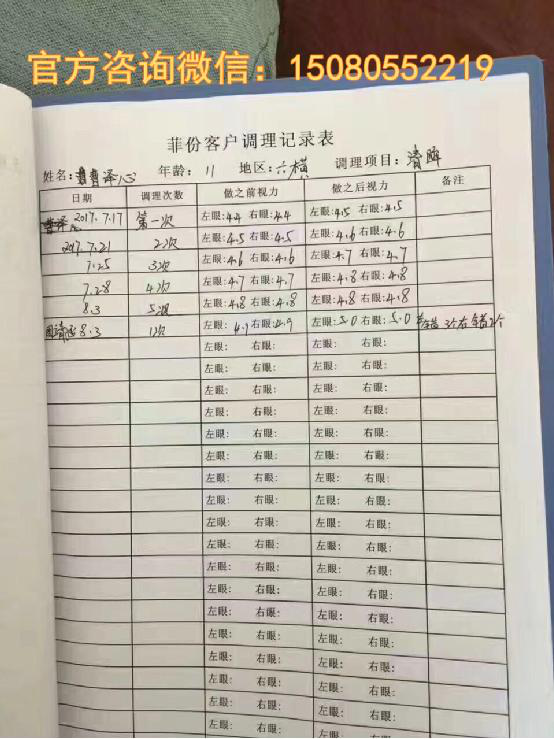 官方咨询微信：15080552219
菲份客户调理记录表
姓名：曹泽心 年龄：11 地区：六横 调理项目：清眸
日期 调理次数 做之前视力 做之后视力 备注
2017.7.17 第一次 左眼：4.4 右眼：4.4 左眼：4.5 右眼：4.5
2017.7.21 2次 左眼：4.5 右眼：4.5 左眼：4.6 右眼：4.6
7.25 3次 左眼：4.6 右眼：4.6 左眼：4.7 右眼：4.7
7.28 4次 左眼：4.7 右眼：4.7 左眼：4.8 右眼：4.8
8.3 5次 左眼：4.8 右眼：4.8 左眼：4.8 右眼：4.8
8.3 1次 左眼：4.9 右眼：4.9 左眼：5.0 右眼：5.0
左眼： 右眼： 左眼： 右眼：
左眼： 右眼： 左眼： 右眼：
左眼： 右眼： 左眼： 右眼：
左眼： 右眼： 左眼： 右眼：
左眼： 右眼： 左眼： 右眼：
左眼： 右眼： 左眼： 右眼：
左眼： 右眼： 左眼： 右眼：
左眼： 右眼： 左眼： 右眼：
左眼： 右眼： 左眼： 右眼：
左眼： 右眼： 左眼： 右眼：
左眼： 右眼： 左眼： 右眼：
左眼： 右眼： 左眼： 右眼：
左眼： 右眼： 左眼： 右眼：
左眼： 右眼： 左眼： 右眼：
左眼： 右眼： 左眼： 右眼：
左眼： 右眼： 左眼： 右眼：
左眼： 右眼： 左眼： 右眼：
左眼： 右眼： 左眼： 右眼：